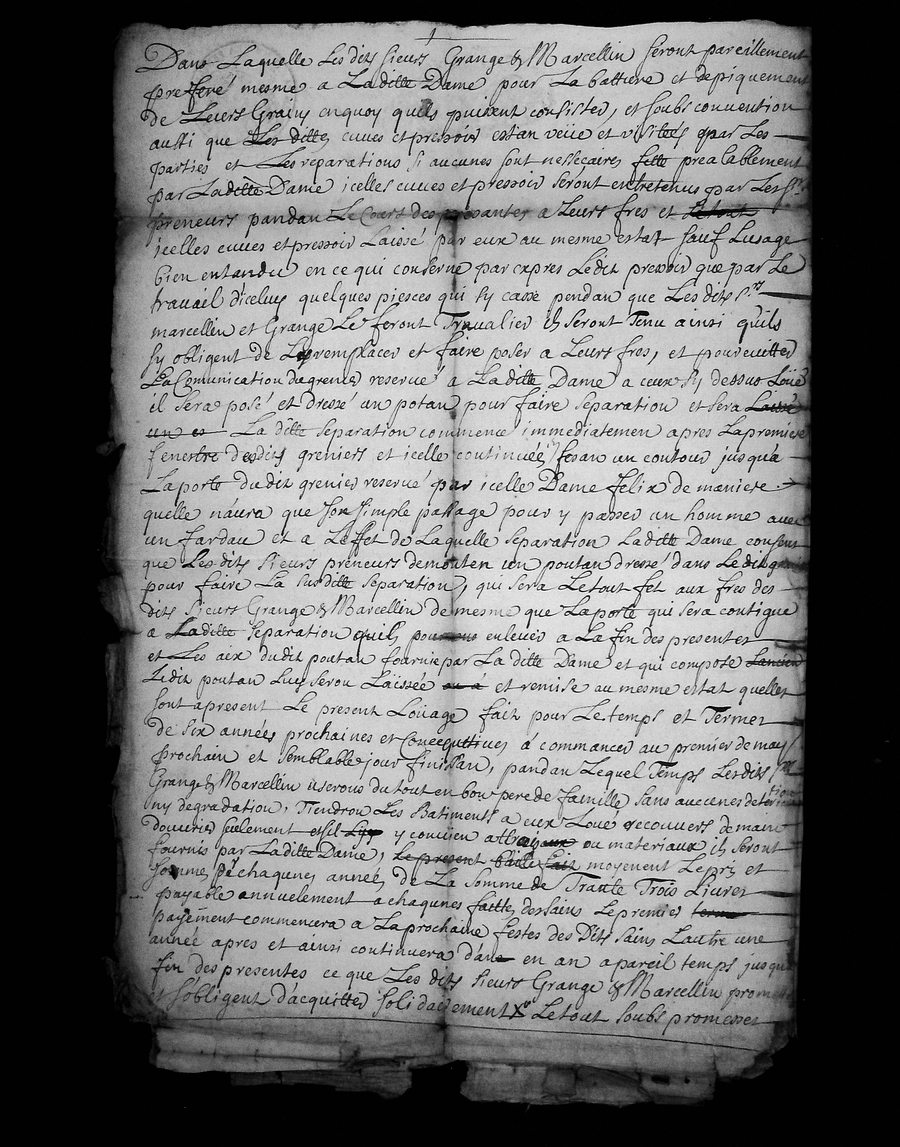 Dans Laquelle Les dits sieurs Grange & Marcellin seront pareillement
preferé mesme a Laditte Dame pour La batture et depiquement
de Leurs Grains en quoy quils puissent consister, et soubs convention
aussi que Les dittes cuves et pressoir estan veüe et visités par Les
parties et Les reparations si aucunes sont nessecaires fette prealablement
par Laditte Dame icelles cuves et pressoir seront entretenus par Les Srs
preneurs pandan Le Cours des presantes a Leurs fres et Letout
icelles cuves et pressoir Laissé par eux au mesme estat sauf Lusage
bien entandu en ce qui conserne par expres Ledit pressoir que par Le
travail diceluy quelques piesces qui sy casse pendan que Les dits Srs
marcellin et Grange Le feront Travalier ils seront Tenu ainsi quils
sy obligent de Les remplacer et faire poser a Leurs fres, et pour evitter
La Comunication du grenier reservé a Laditte Dame a ceux sy dessus Loüé
il sera posé et dressé un potan pour faire separation et sera Laissé
un es La ditte separation commence immediatemen apres La premiere
fenestre desdits greniers et icelle continuée fesan un contour jusqu'a
La porte dudit grenier reservé par icelle Dame felix de maniere
quelle naura que son simple passage pour y passer un homme avec
un fardau et a Leffet de Laquelle separation Laditte Dame consent
que Les dits sieurs preneurs demonten un poutan dressé dans Ledit grenier
pour faire La susditte separation, qui sera Letout fet aux fres des
dits sieurs Grange & Marcellin de mesme que La porte qui sera contigue
a Laditte separation quils pourront enlever a La fin des presentes
et Les aix dudit poutan fournie par La ditte Dame et qui compose Lancien
Ledit poutan Luy serou Laissée ou a et remise au mesme estat quelles
sont apresent Le present Loüage fait pour Le temps et Termes
de six années prochaines et Consecquttives á commancer au premier de may
prochain et semblable jour finissan, pandan Lequel Temps Lesdits Srs
Grange & Marcellin userons du tout en bon pere de famille sans aucunes deterioration
ny degradation, Tiendron Les Batiments a eux Loué recouvers de main
douvrier seulement et sil y convien attraits ou materiaux ils seront
fournis par Laditte Dame, Le present baille fait moyenent Le pris et
somme pr chaqunes années de La somme de Trante Trois Livres
payable annuelement a chaqunes faittes des sains Le premier terme
payement commencera a La prochaine festes des Dits sains Lautre une
année apres et ainsi continuera dan en an a pareil temps jusqua
fin des presentes ce que Les dits sieurs Grange & Marcellin promettent
et sobligent d'acquitter solidairement Letout soubs promesses